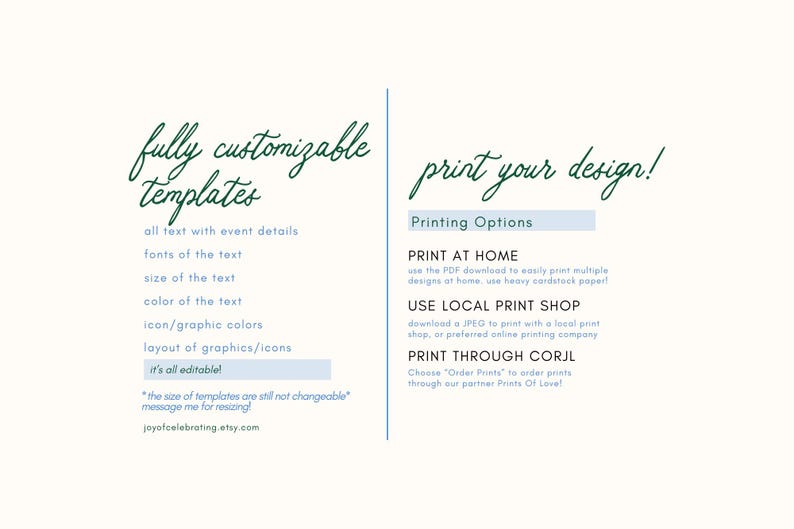 fully customizable
templates
all text with event details
fonts of the text
size of the text
color of the text
icon/graphic colors
layout of graphics/icons
it's all editable!
*the size of templates are still not changeable*
message me for resizing!
joyofcelebrating.etsy.com
print your design!
Printing Options
PRINT AT HOME
use the PDF download to easily print multiple
designs at home. use heavy cardstock paper!
USE LOCAL PRINT SHOP
download a JPEG to print with a local print
shop, or preferred online printing company
PRINT THROUGH CORJL
Choose "Order Prints" to order prints
through our partner Prints Of Love!